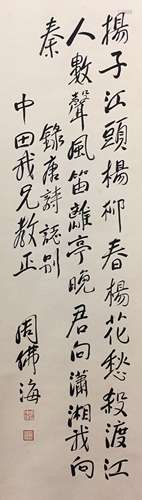 揚子江頭楊柳春楊花愁殺渡江
人數聲風笛離亭晚君向瀟湘我向
秦
錄唐詩誌別
中田我兄教正
周佛海